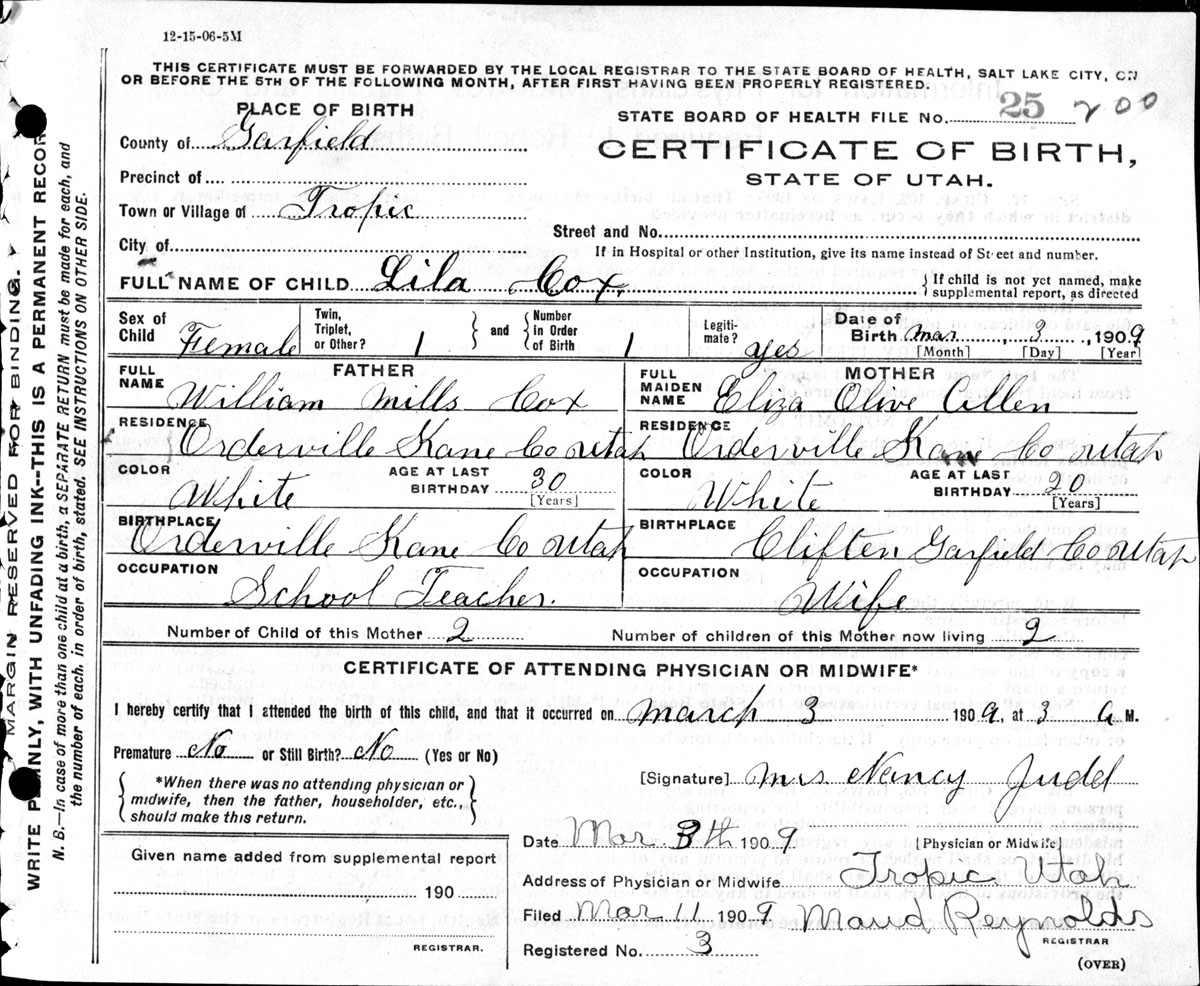 12-15-06-5M
THIS CERTIFICATE MUST BE FORWARDED BY THE LOCAL REGISTRAR TO THE STATE BOARD OF HEALTH, SALT LAKE CITY, ON
OR BEFORE THE 5TH OF THE FOLLOWING MONTH, AFTER FIRST HAVING BEEN PROPERLY REGISTERED.
PLACE OF BIRTH
STATE BOARD OF HEALTH FILE No. 25 200
County of Garfield
CERTIFICATE OF BIRTH,
STATE OF UTAH.
Precinct of
Town or Village of Tropic
Street and No.
City of
If in Hospital or other Institution, give its name instead of Street and number.
FULL NAME OF CHILD Lila Cox. } If child is not yet named, make
supplemental report, as directed
Sex of Child Female Twin, Triplet, or Other? 1 } and { Number in Order of Birth 1 Legiti-mate? yes Date of Birth Mar. 3, 1909
[Month] [Day] [Year]
FATHER
FULL NAME William Mills Cox
RESIDENCE Orderville Kane Co Utah
COLOR White AGE AT LAST BIRTHDAY 30 [Years]
BIRTHPLACE Orderville Kane Co Utah
OCCUPATION School Teacher.
MOTHER
FULL MAIDEN NAME Eliza Olive Allen
RESIDENCE Orderville Kane Co Utah
COLOR White AGE AT LAST BIRTHDAY 20 [Years]
BIRTHPLACE Cliften Garfield Co Utah
OCCUPATION Wife
Number of Child of this Mother 2 Number of children of this Mother now living 2
CERTIFICATE OF ATTENDING PHYSICIAN OR MIDWIFE*
I hereby certify that I attended the birth of this child, and that it occurred on March 3 1909, at 3 a M.
Premature No or Still Birth? No (Yes or No)
*When there was no attending physician or
midwife, then the father, householder, etc.,
should make this return.
[Signature] Mrs Nancy Judd
[Physician or Midwife]
Date Mar 8th 1909
Address of Physician or Midwife Tropic Utah
Filed Mar 11 1909 Maud Reynolds
REGISTRAR
Registered No. 3
(OVER)
Given name added from supplemental report
190
REGISTRAR.
MARGIN RESERVED FOR BINDING.
WRITE PLAINLY, WITH UNFADING INK--THIS IS A PERMANENT RECOR
N. B.—In case of more than one child at a birth, a SEPARATE RETURN must be made for each, and
the number of each, in order of birth, stated. SEE INSTRUCTIONS ON OTHER SIDE.